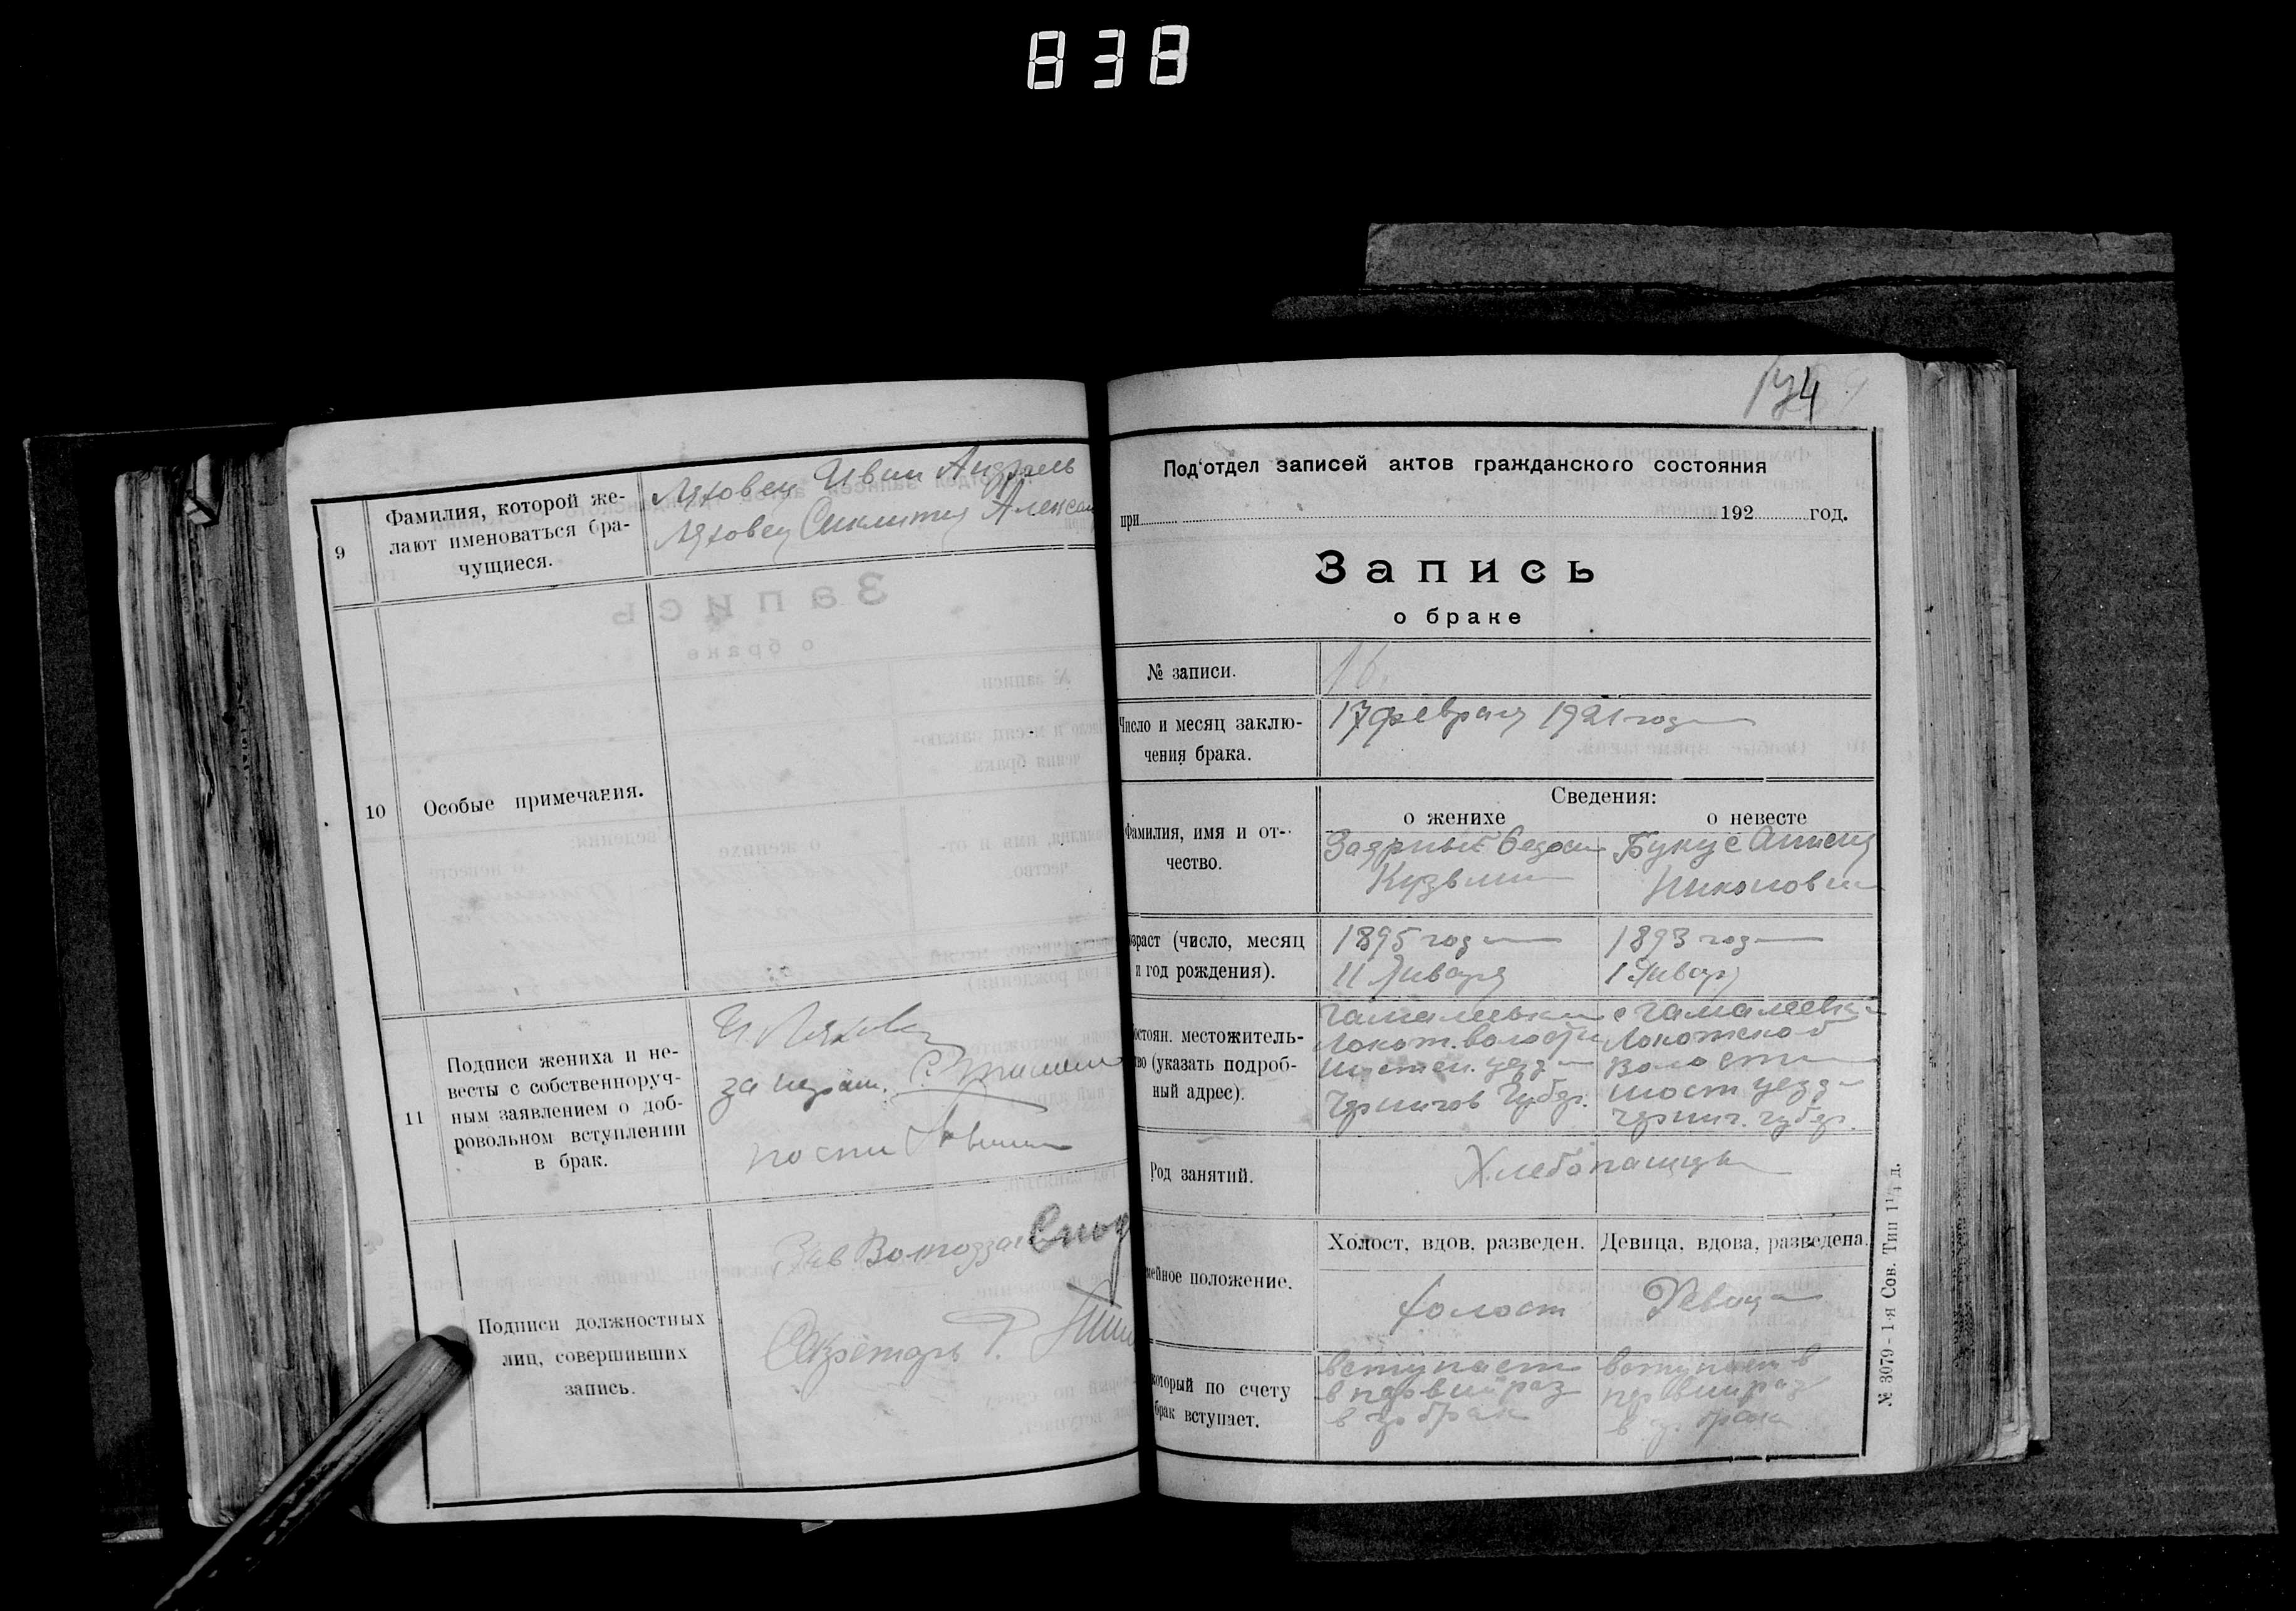 838
9
Фамилия, которой же-
лают именоваться бра-
чущиеся.
Ляховец Иван Андреев
Ляховец Александ
10
Особые примечания.
11
Подписи жениха и не-
весты с собственноруч-
ным заявлением о доб-
ровольном вступлении
в брак.
И. Ляховец
за неграм.
Подписи должностных
лиц, совершивших
запись.
Зав
Секретарь
174
Под'отдел записей актов гражданского состояния
при 192 год.
Запись
о браке
№ записи.
16.
Число и месяц заклю-
чения брака.
17 февраля 1921 года
Сведения:
о женихе
о невесте
Фамилия, имя и от-
чество.
Заярный
Кузьмин
Букус
Никоновна
зраст (число, месяц
и год рождения).
1895 года
11 Января
1893 года
1 Январ
остоян. местожитель-
во (указать подроб-
ный адрес).
Гамалеевки
Локот. волости
уезда
Чернигов Губер.
с Гамалеевки
Локотской
Волости
уезда
Черниг. губер.
Род занятий.
Хлебопашцы
мейное положение.
Холост, вдов, разведен.
Девица, вдова, разведена.
холост
Девица
который по счету
брак вступает.
вступает
в первый раз
в гр брак
вступает в
первый раз
в гр. брак
№ 3079 - 1-я Сов. Тип 1¼ д.